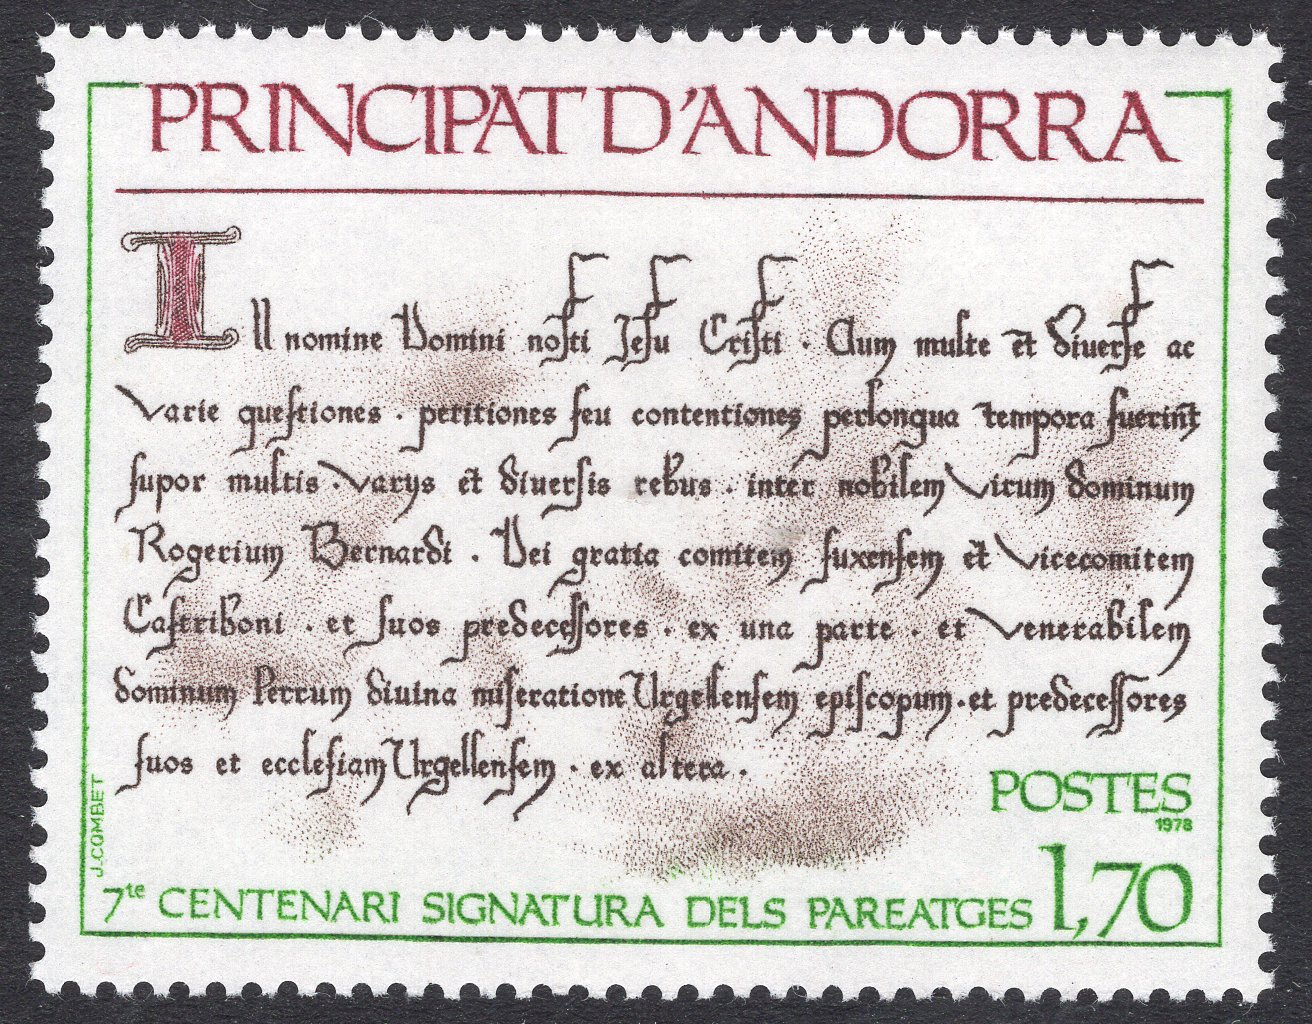 PRINCIPAT D'ANDORRA
I In nomine Domini nosti Jesu Cristi · Cum multe et diverse ac
varie questiones · petitiones seu contentiones perlongua tempora fuerint
supor multis · varys et diuersis rebus · inter nobilem virum dominum
Rogerium Bernardi · Dei gratia comitem fuxensem et vicecomitem
Castriboni · et suos predecessores · ex una parte · et venerabilem
dominum Perrum diuina miseratione Urgellensem episcopum · et predecessores
suos et ecclesiam Urgellensem · ex altera ·
POSTES
1978
J. COMBET
7te CENTENARI SIGNATURA DELS PAREATGES 1,70